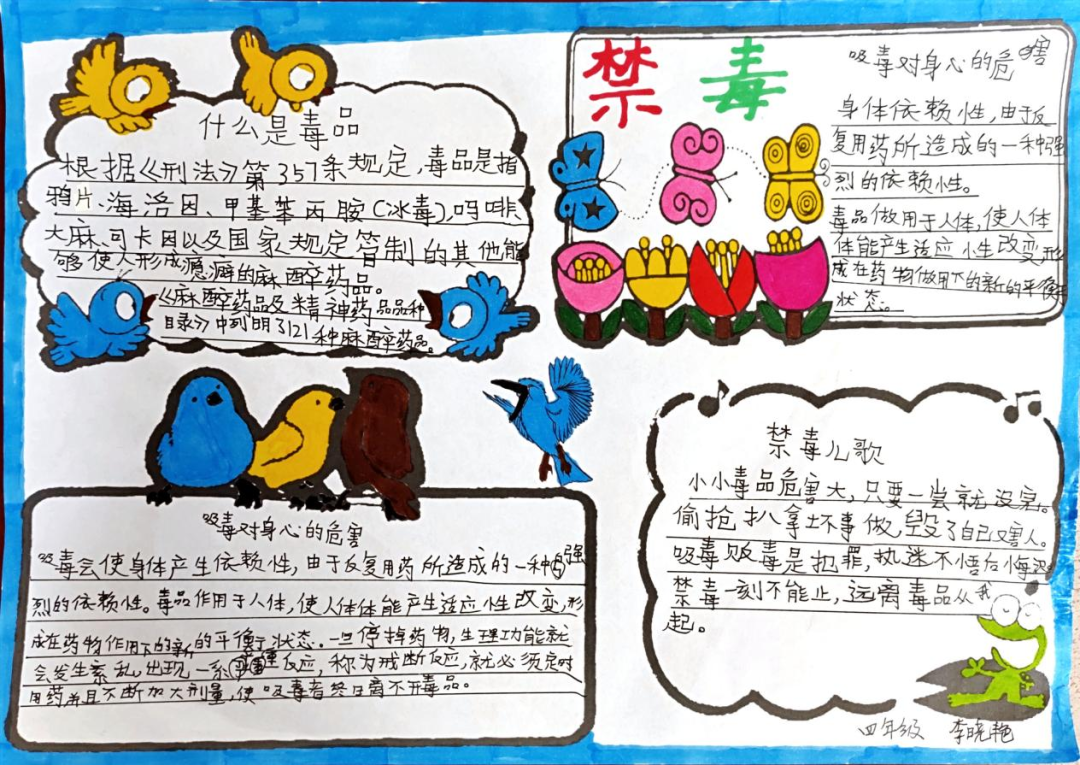 什么是毒品
根据《刑法》第357条规定，毒品是指
鸦片、海洛因、甲基苯丙胺（冰毒）、吗啡
大麻、可卡因以及国家规定管制的其他能
够使人形成瘾癖的麻醉药品。
《麻醉药品及精神药品品种
目录》中列明了121种麻醉药品。
禁毒
吸毒对身心的危害
身体依赖性，由于反
复用药所造成的一种强
烈的依赖性。
毒品做用于人体，使人体
体能产生适应性改变，形
成在药物做用下的新的平衡
状态。
吸毒对身心的危害
吸毒会使身体产生依赖性，由于反复用药所造成的一种强
烈的依赖性。毒品作用于人体，使人体体能产生适应性改变，形
成在药物作用下的新的平衡状态。一旦停掉药物，生理功能就
会发生紊乱，出现一系反应，称为戒断反应，就必须定时
用药并且不断加大剂量，使吸毒者终日离不开毒品。
禁毒儿歌
小小毒品危害大，只要一尝就没完。
偷抢扒拿坏事做，毁了自己又害人。
吸毒贩毒是犯罪，执迷不悟后悔
禁毒一刻不能止，远离毒品从我
起。
四年级 李晓艳